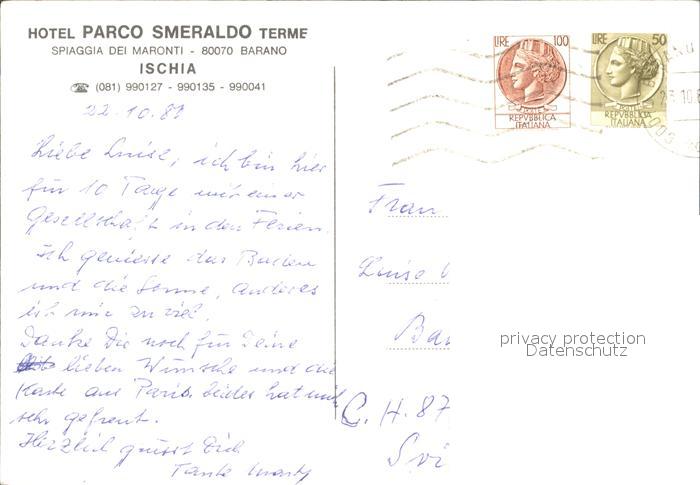 HOTEL PARCO SMERALDO TERME
SPIAGGIA DEI MARONTI - 80070 BARANO
ISCHIA
☎ (081) 990127 - 990135 - 990041
22.10.81
Liebe Luise, ich bin hier
für 10 Tage mit einer
Gesellschaft in den Ferien.
Ich geniesse das Baden
und die Sonne, anderes
ist mir zu viel.
Danke Dir noch für Deine
lieben Wünsche und die
Karte aus Paris. beides hat mich
sehr gefreut.
Herzlich grüsst Dich
Tante
LIRE 100
REPVBBLICA
ITALIANA
LIRE 50
REPVBBLICA
ITALIANA
Frau
Luise
C.H. 87
Svi
privacy protection
Datenschutz